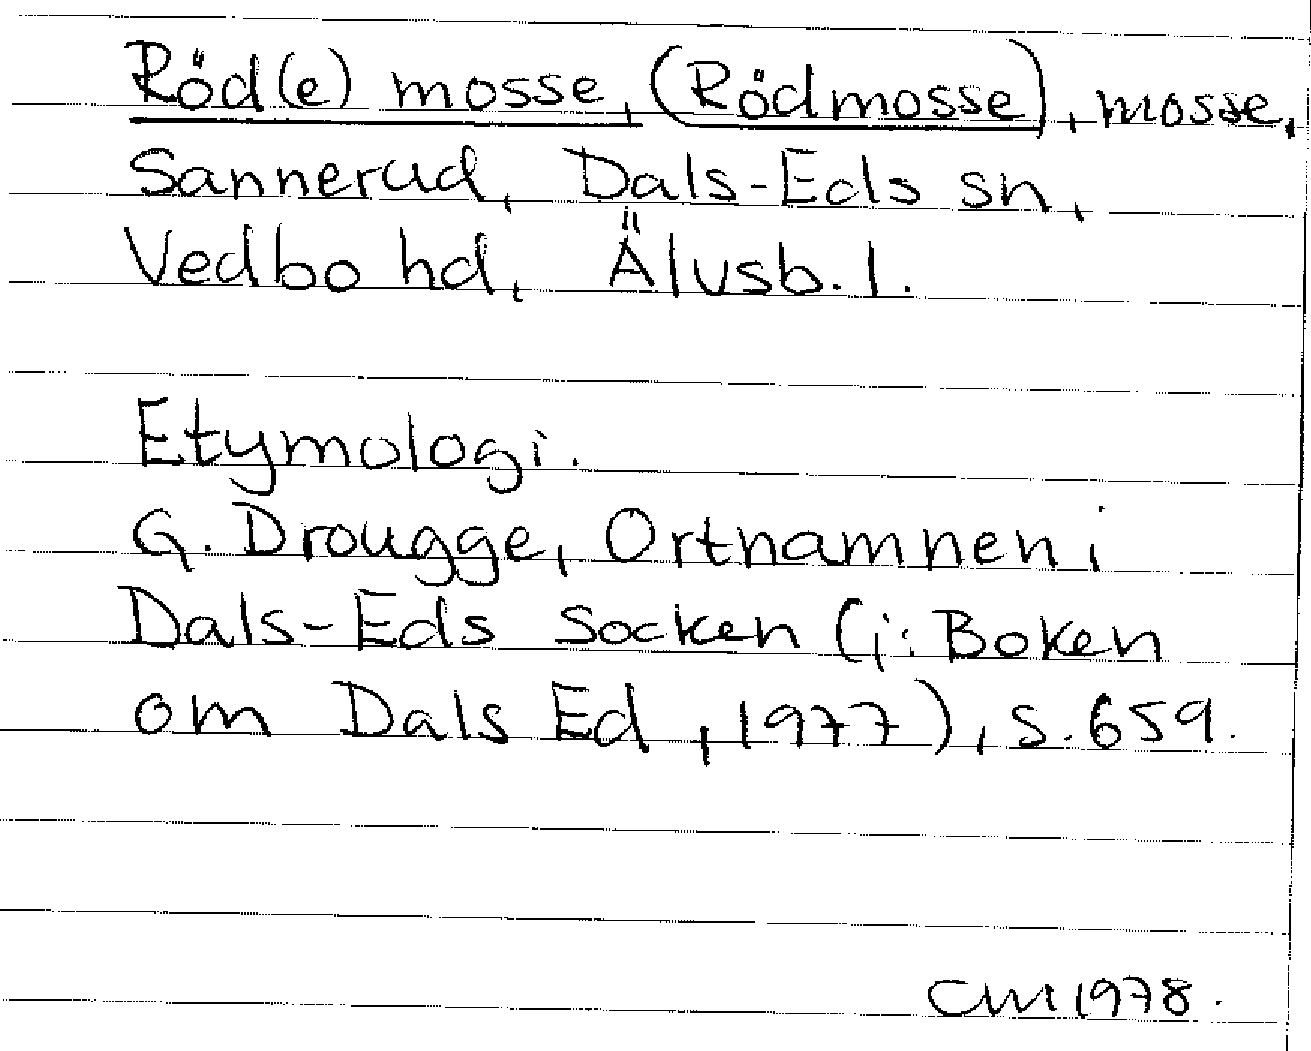 Röd(e) mosse, (Rödmosse), mosse,
Sannerud, Dals-Eds sn,
Vedbo hd, Älvsb. l.
Etymologi.
G. Drougge, Ortnamnen i
Dals-Eds socken (i: Boken
om Dals Ed, 1977), s. 659.
CM 1978.